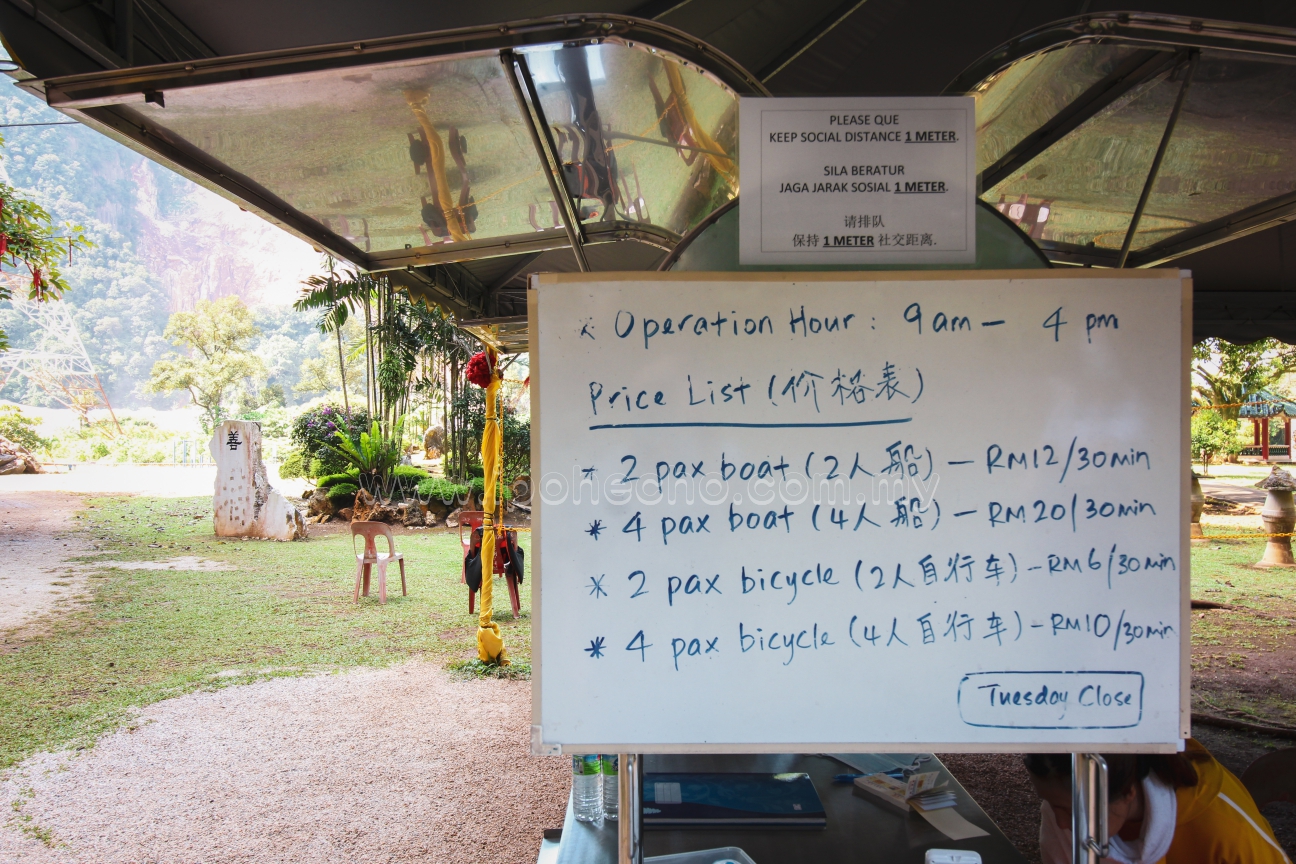 PLEASE QUE
KEEP SOCIAL DISTANCE 1 METER.
SILA BERATUR
JAGA JARAK SOSIAL 1 METER.
请排队
保持 1 METER 社交距离.
* Operation Hour : 9am - 4 pm
Price List (价格表)
* 2 pax boat (2人船) - RM12/30min
* 4 pax boat (4人船) - RM20/30min
* 2 pax bicycle (2人自行车) - RM6/30min
* 4 pax bicycle (4人自行车) - RM10/30min
Tuesday Close
善